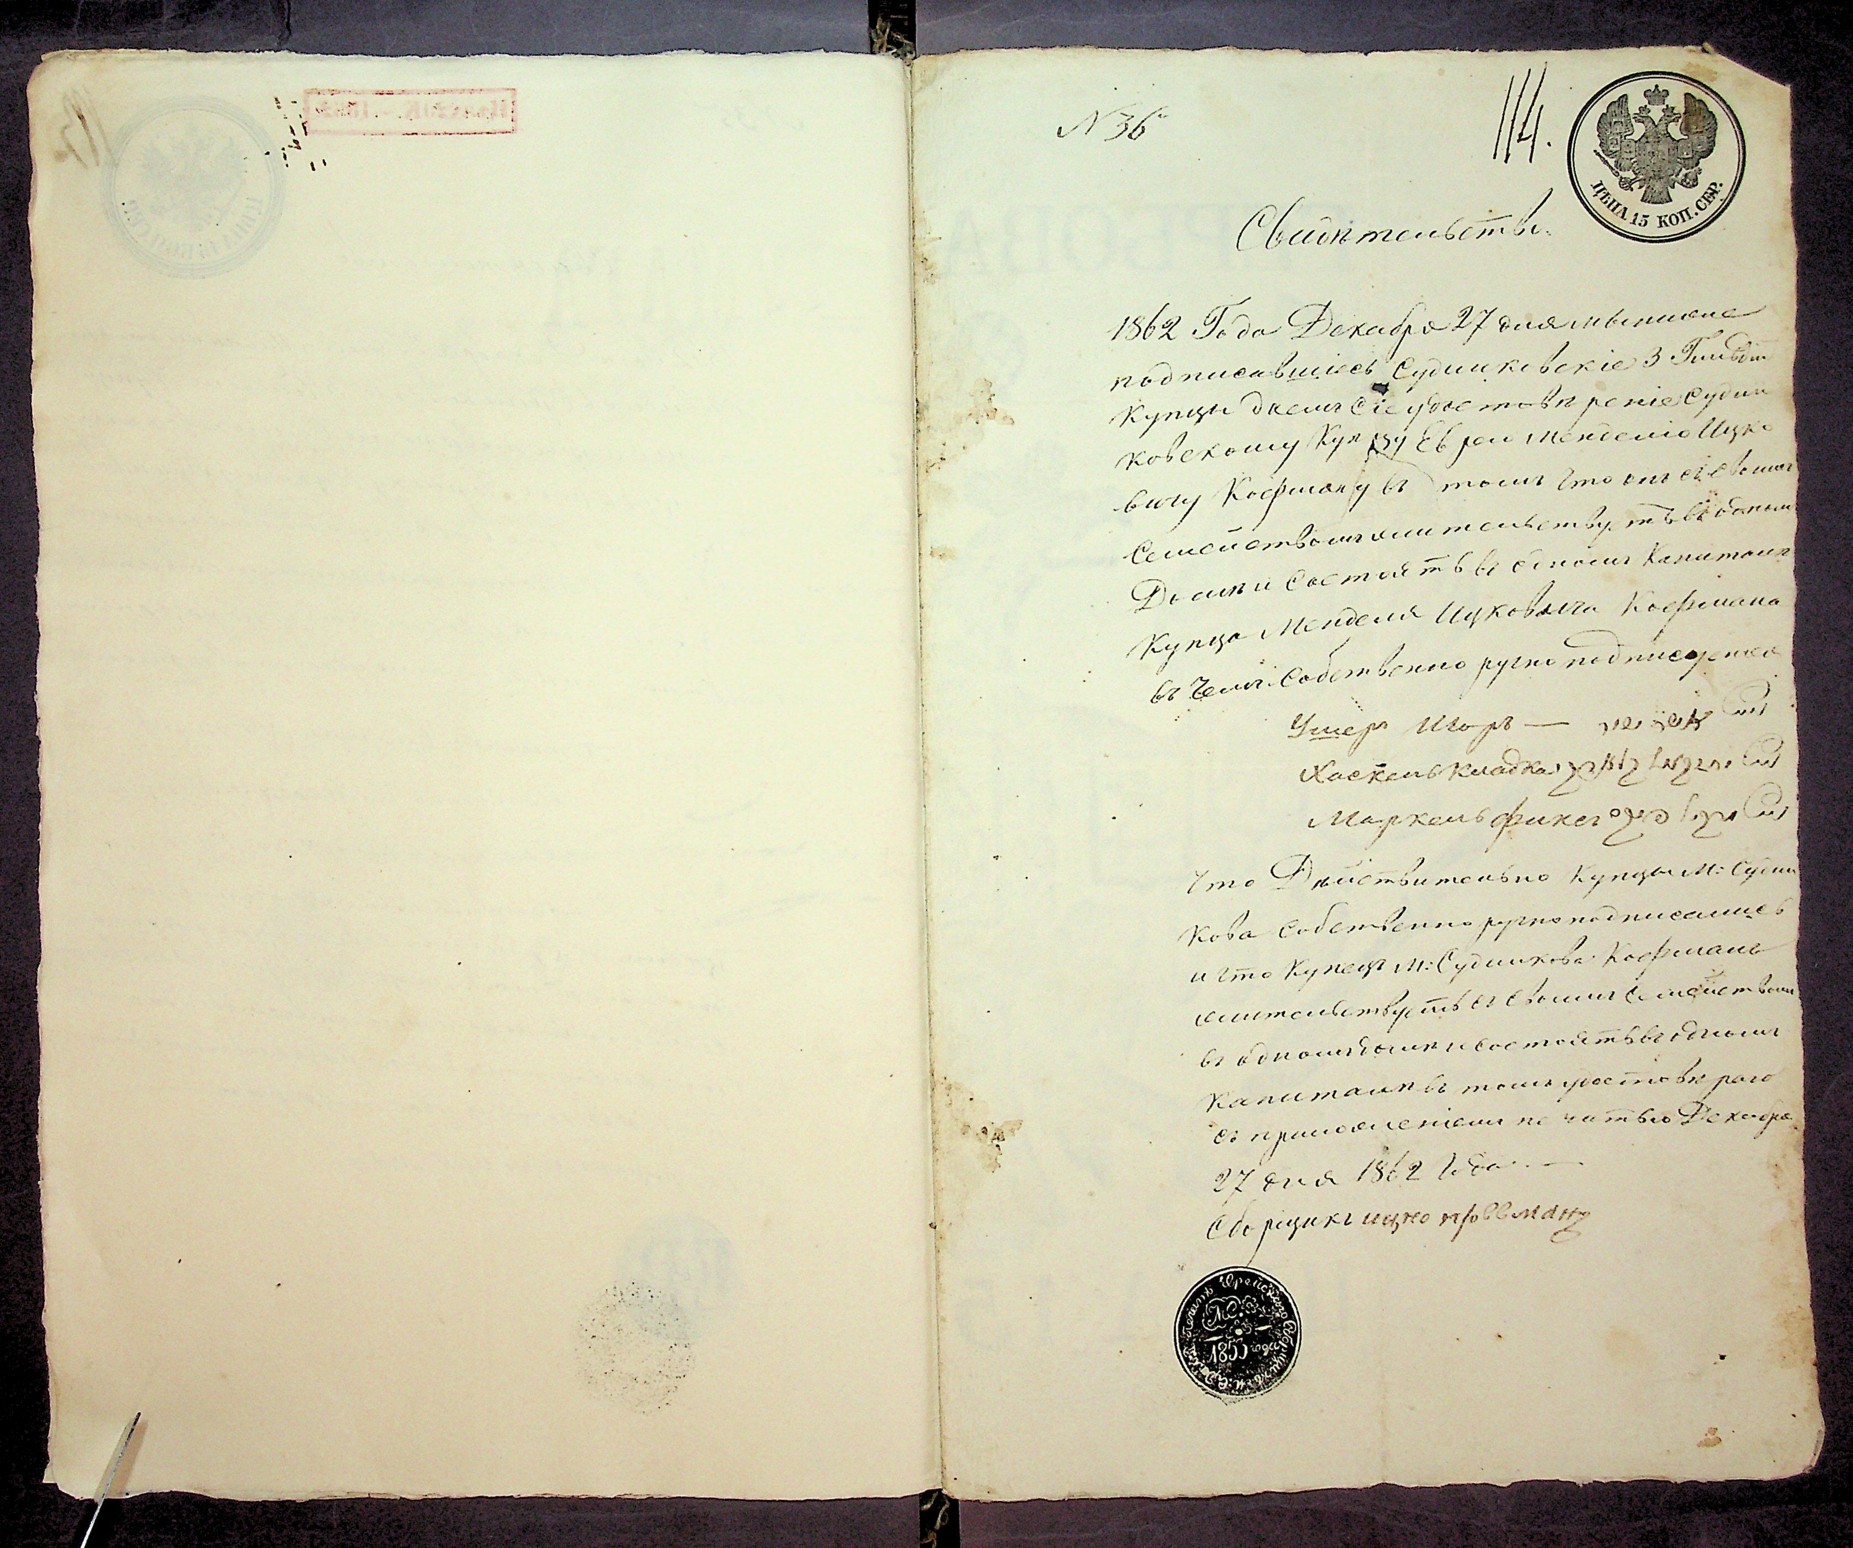 N 36
114.
ЦѢНА 15 КОП. СЕР.
Свидѣтельство.
1862 Года Декабря 27 дня мы ниже
подписавшіесь Судилковскіе 3 Гильдіи
Купцы даемъ Сіе удостовѣреніе Судил
ковскому Купцу Еврею Менделю Ицко
вичу Кофману въ томъ что онъ съ своимъ
Семействомъ жительствуетъ въ одномъ
Домѣ и Состоятъ въ одномъ Капиталѣ
Купца Менделя Ицковича Кофмана
въ Чемъ Собственно ручно подписуемся
Ушеръ Игоръ —
Хаскель Кладка
Маркель Финкел
Что Дѣйствительно Купцы М: Судил
кова Собственно ручно подписались
и что Купецъ М: Судилкова Кофманъ
жительствуетъ съ своимъ Семействомъ
въ одномъ домѣ и состоятъ въ одномъ
Капиталѣ въ томъ удостовѣряю
съ приложеніемъ печатью Декабря
27 дня 1862 Года. —
Сборщикъ ицко
1853